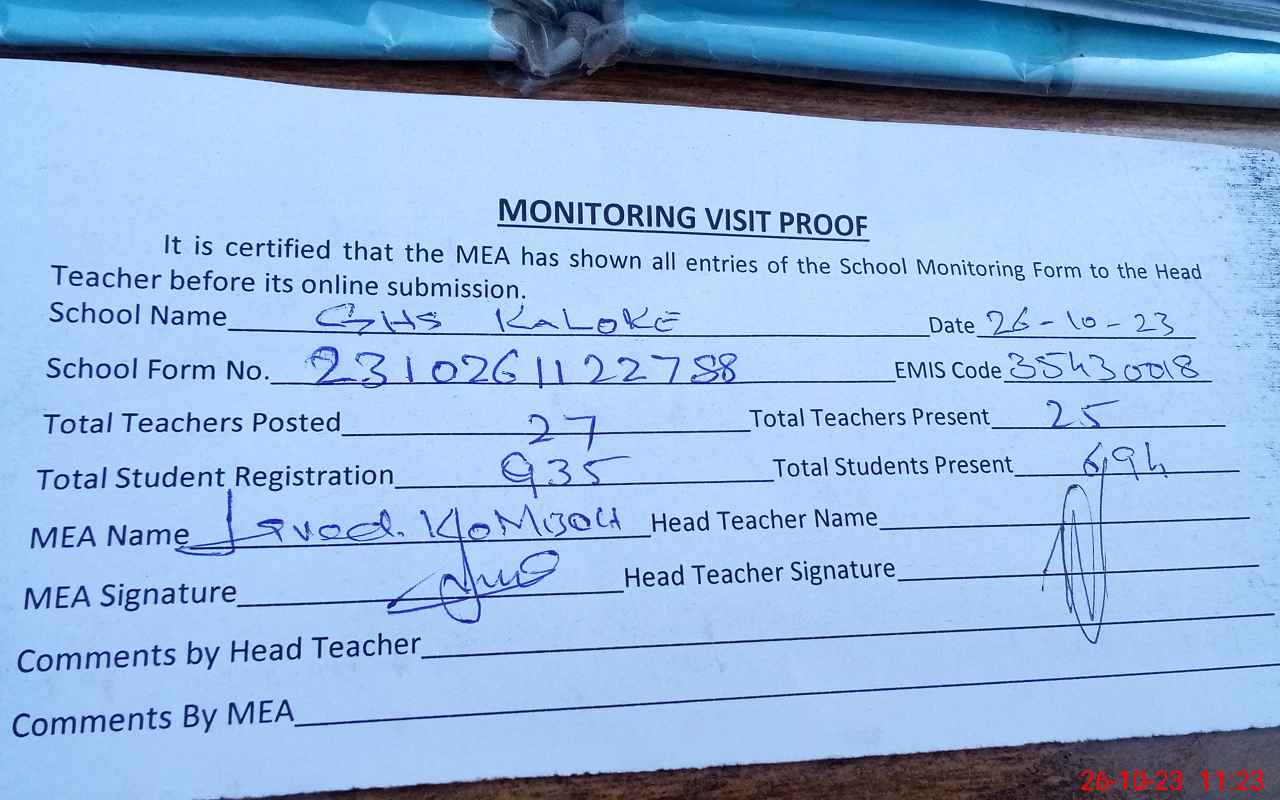 MONITORING VISIT PROOF
It is certified that the MEA has shown all entries of the School Monitoring Form to the Head
Teacher before its online submission.
School Name GHS KaLOKE Date 26-10-23
School Form No. 23102611227 88 EMIS Code 35430018
Total Teachers Posted 27 Total Teachers Present 25
Total Student Registration 935 Total Students Present 694
MEA Name Javed Head Teacher Name
MEA Signature Head Teacher Signature
Comments by Head Teacher
Comments By MEA
26-10-23 11:23